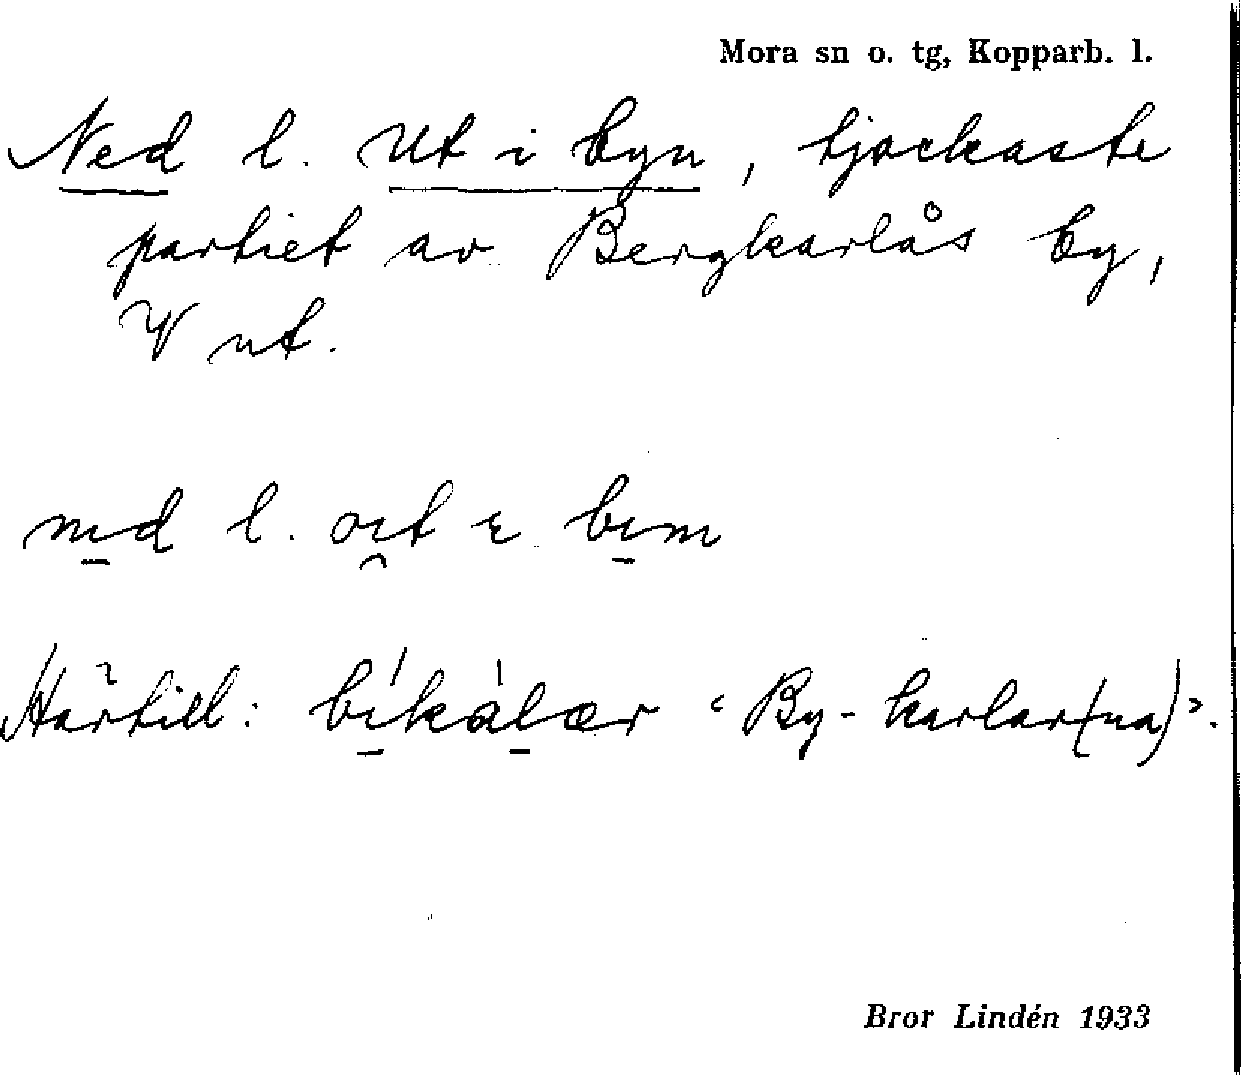 Mora sn o. tg, Kopparb. l.
Ned l. Ut i byn, tjockaste
partiet av Bergkarlås by,
V ut.
nɪd l. oɪt ɛ bɪn
Härtill: bɪ́kàlær "By-karlar(na)".
Bror Lindén 1933